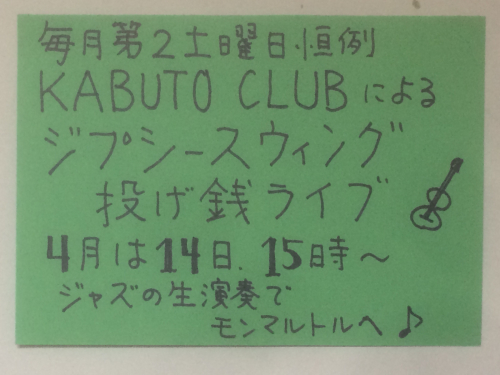 毎月第2土曜日恒例
KABUTO CLUBによる
ジプシースウィング
投げ銭ライブ
4月は14日、15時～
ジャズの生演奏で
モンマルトルへ♪